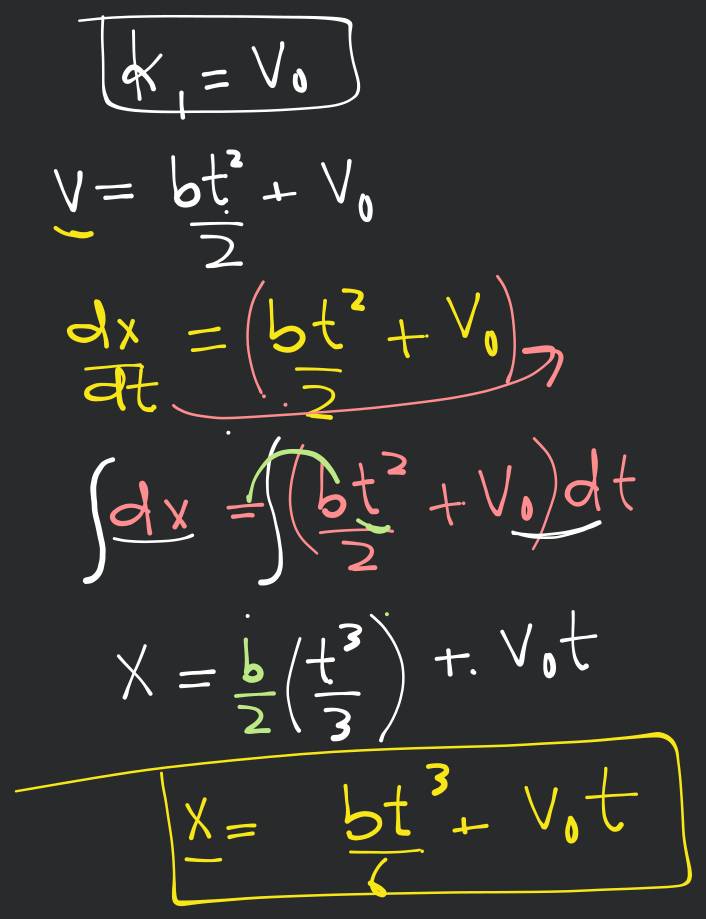 k₁ = V₀
V = bt²/2 + V₀
dx/dt = (bt²/2 + V₀)
∫dx = ∫(bt²/2 + V₀)dt
X = b/2 (t³/3) + V₀t
X = bt³/6 + V₀t